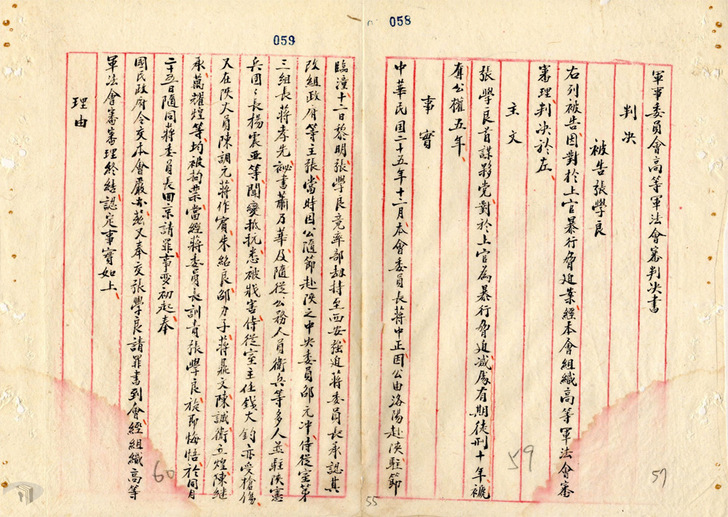 058
軍事委員會高等軍法會審判決書
判決
被告張學良
右列被告因對於上官暴行脅迫案經本會組織高等軍法會審
審理判決於左
主文
張學良首謀夥黨對於上官為暴行脅迫減處有期徒刑十年褫
奪公權五年
事實
中華民國二十五年十二月本會委員長蔣中正因公由洛陽赴陝駐節
57
59
55
059
臨潼十二日黎明張學良竟率部劫持至西安強迫蔣委員長承認其
改組政府等主張當時因公隨節赴陝之中央委員邵元冲侍從室第
三組長蔣孝先祕書蕭乃華及隨從公務人員衛兵等多人並駐陝憲
兵團團長楊震亞等聞變抵抗悉被戕害侍從室主任錢大鈞亦受槍傷
又在陝大員陳調元蔣作賓朱紹良邵力子蔣鼎文陳誠衛立煌陳繼
承萬耀煌等均被拘禁當經蔣委員長訓責張學良旋即悔悟於同月
二十五日隨同蔣委員長回京請罪事變初起奉
國民政府令交本會嚴辦茲又奉交張學良請罪書到會經組織高等
軍法會審審理終結認定事實如上
理由
60